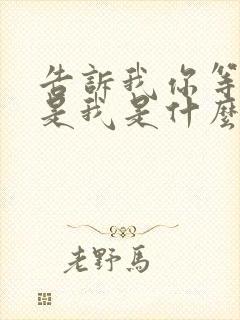 告訴我你等
是我是什麼
老野馬